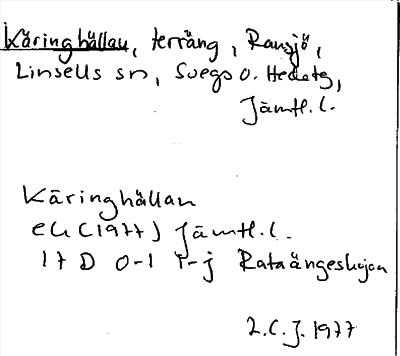 Käringhällan, terräng, Ransjö,
Linsells sn, Svegs o. Hedets,
Jämtl. l.
Käringhällan
ek (1977) Jämtl. l.
17 D 0-1 i-j Rataängeskojan
L.C.J. 1977